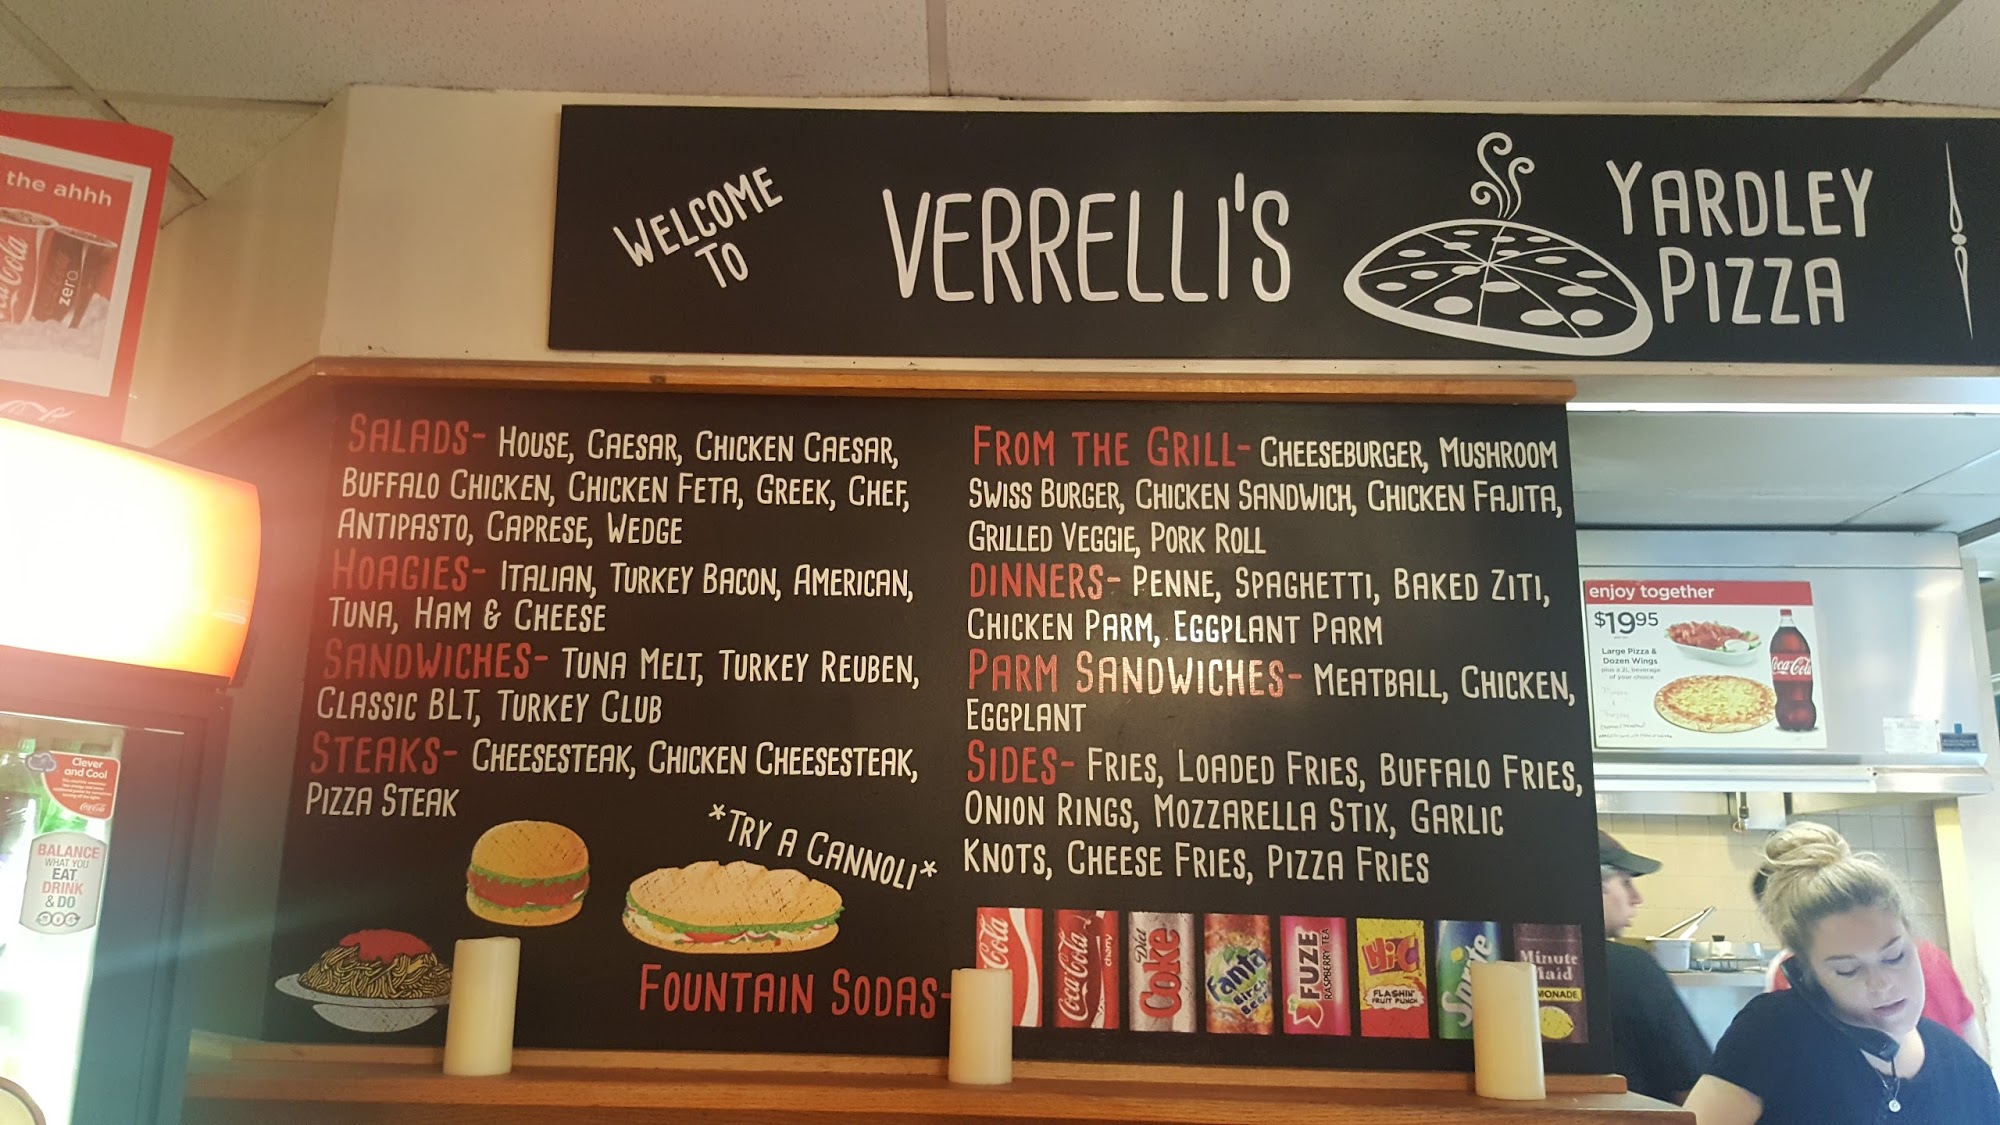 WELCOME
TO
VERRELLI'S
YARDLEY
PIZZA
the ahhh
Coca-Cola
zero
SALADS- HOUSE, CAESAR, CHICKEN CAESAR,
BUFFALO CHICKEN, CHICKEN FETA, GREEK, CHEF,
ANTIPASTO, CAPRESE, WEDGE
HOAGIES- ITALIAN, TURKEY BACON, AMERICAN,
TUNA, HAM & CHEESE
SANDWICHES- TUNA MELT, TURKEY REUBEN,
CLASSIC BLT, TURKEY CLUB
STEAKS- CHEESESTEAK, CHICKEN CHEESESTEAK,
PIZZA STEAK
*TRY A CANNOLI*
FROM THE GRILL- CHEESEBURGER, MUSHROOM
SWISS BURGER, CHICKEN SANDWICH, CHICKEN FAJITA,
GRILLED VEGGIE, PORK ROLL
DINNERS- PENNE, SPAGHETTI, BAKED ZITI,
CHICKEN PARM, EGGPLANT PARM
PARM SANDWICHES- MEATBALL, CHICKEN,
EGGPLANT
SIDES- FRIES, LOADED FRIES, BUFFALO FRIES,
ONION RINGS, MOZZARELLA STIX, GARLIC
KNOTS, CHEESE FRIES, PIZZA FRIES
FOUNTAIN SODAS-
Coca-Cola
Coca-Cola cherry
Diet Coke
Fanta Birch Beer
FUZE RASPBERRY TEA
Hi-C
FLASHIN'
FRUIT PUNCH
Sprite
Minute
Maid
MONADE
enjoy together
$19.95
Large Pizza &
Dozen Wings
plus a 2L beverage
of your choice
Coca-Cola
Clever
and Cool
Coca-Cola
BALANCE
WHAT YOU
EAT
DRINK
& DO